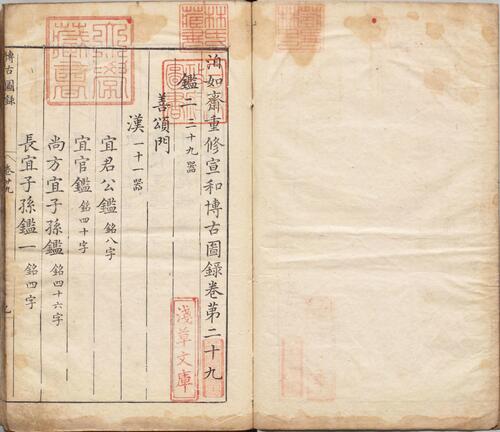 泊如齋重修宣和博古圖錄卷第二十九
鑑二 三十九器
善頌門
漢 一十一器
宜君公鑑 銘八字
宜官鑑 銘四十字
尚方宜子孫鑑 銘四十六字
長宜子孫鑑一 銘四字
博古圖錄 卷廿九
淺草文庫
林氏藏書